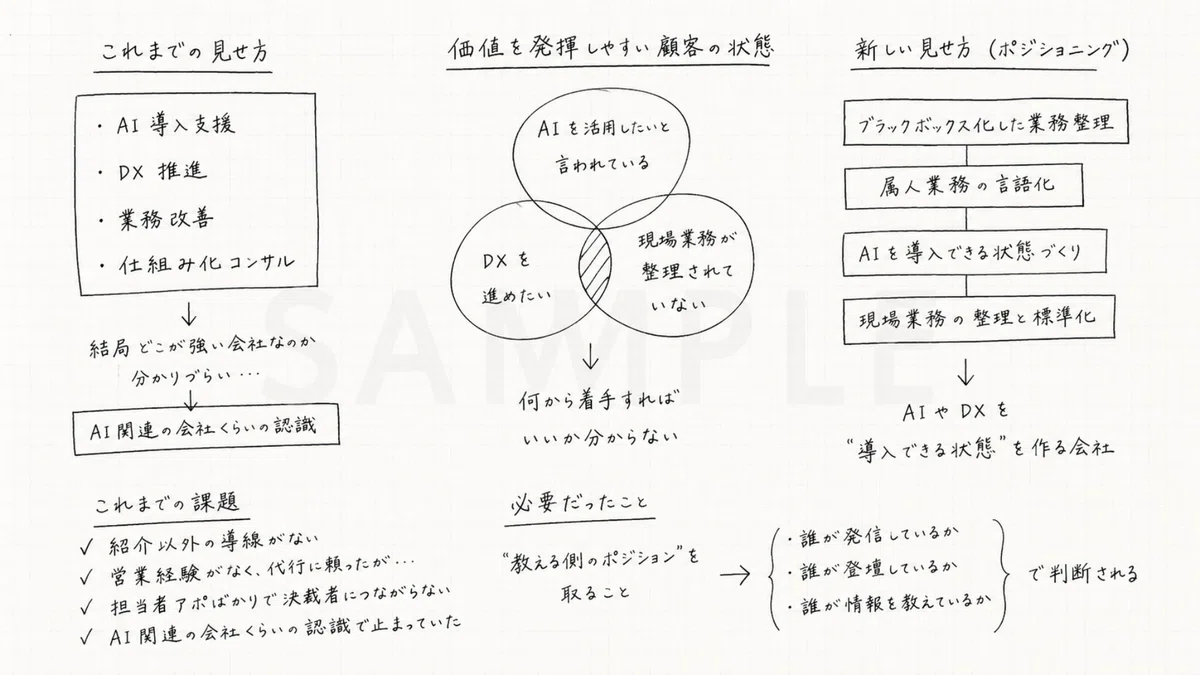 これまでの見せ方
・AI 導入支援
・DX 推進
・業務改善
・仕組み化コンサル
結局どこが強い会社なのか
分かりづらい…
AI関連の会社くらいの認識
価値を発揮しやすい顧客の状態
AIを活用したいと
言われている
DXを
進めたい
現場業務が
整理されて
いない
何から着手すれば
いいか分からない
新しい見せ方(ポジショニング)
ブラックボックス化した業務整理
属人業務の言語化
AIを導入できる状態づくり
現場業務の整理と標準化
AIやDXを
“導入できる状態”を作る会社
これまでの課題
✓ 紹介以外の導線がない
✓ 営業経験がなく、代行に頼ったが…
✓ 担当者アポばかりで決裁者につながらない
✓ AI関連の会社くらいの認識で止まっていた
必要だったこと
“教える側のポジション”を
取ること
・誰が発信しているか
・誰が登壇しているか
・誰が情報を教えているか
で判断される
SAMPLE